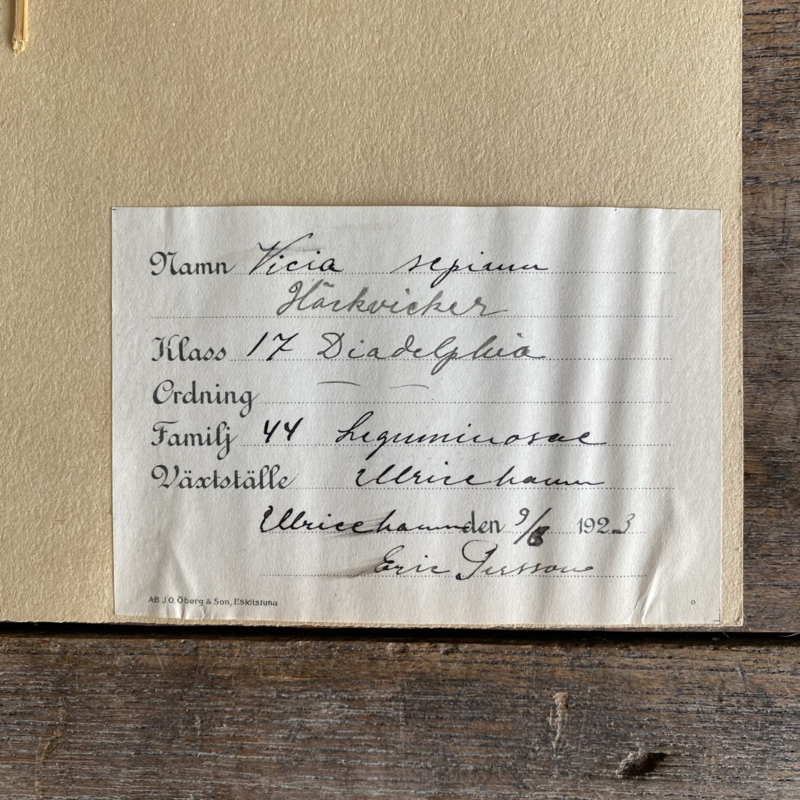 Namn Vicia sepium
Häckvicker
Klass 17 Diadelphia
Ordning
Familj 44 Leguminosae
Växtställe Ulricehamn
Ulricehamn den 9/8 1923
Eric Persson
AB. J.O. Öberg & Son, Eskilstuna